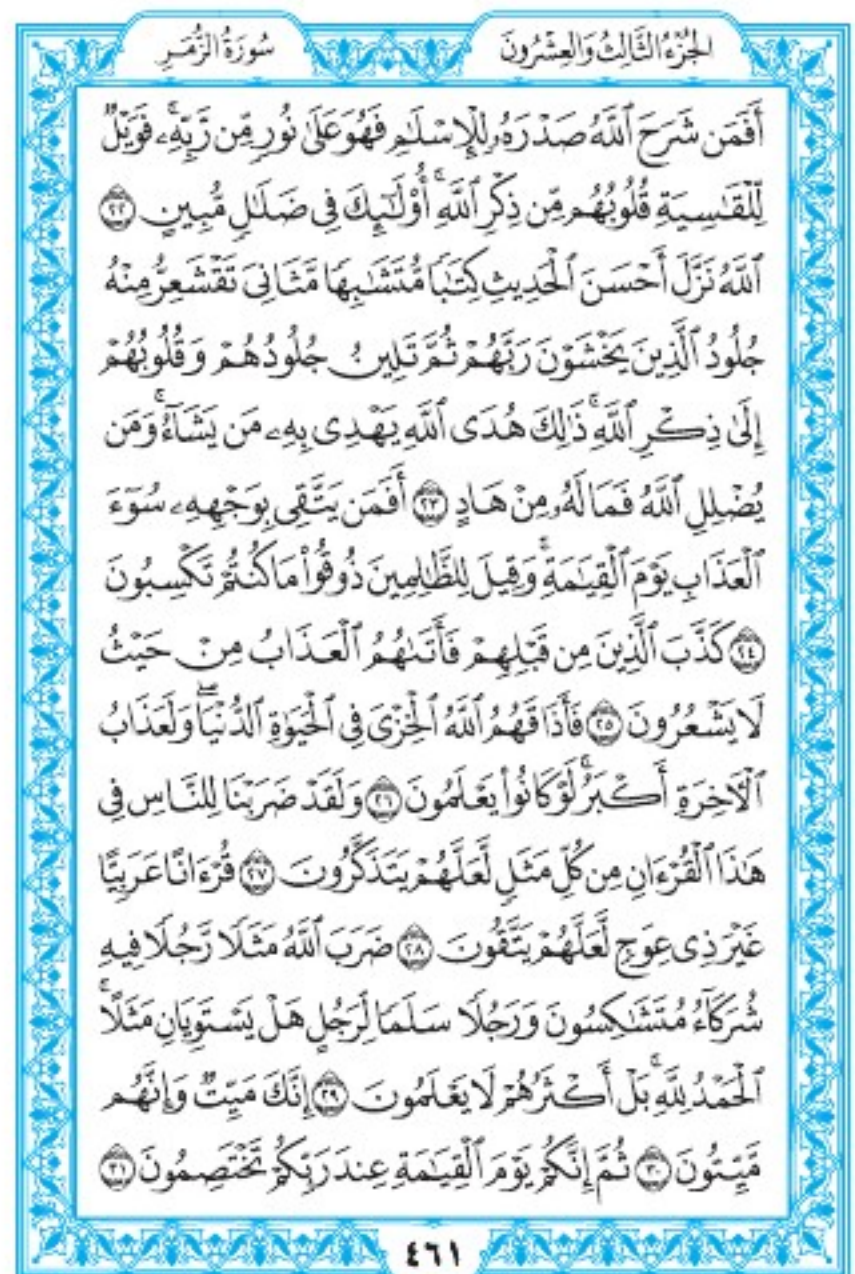 سُورَةُ الزُّمَرِ
الجُزْءُ الثَّالِثُ وَالعِشْرُونَ
أَفَمَن شَرَحَ ٱللَّهُ صَدْرَهُۥ لِلْإِسْلَٰمِ فَهُوَ عَلَىٰ نُورٍ مِّن رَّبِّهِۦۚ فَوَيْلٌ
لِّلْقَٰسِيَةِ قُلُوبُهُم مِّن ذِكْرِ ٱللَّهِۚ أُوْلَٰٓئِكَ فِى ضَلَٰلٍ مُّبِينٍ ٢٢
ٱللَّهُ نَزَّلَ أَحْسَنَ ٱلْحَدِيثِ كِتَٰبًا مُّتَشَٰبِهًا مَّثَانِىَ تَقْشَعِرُّ مِنْهُ
جُلُودُ ٱلَّذِينَ يَخْشَوْنَ رَبَّهُمْ ثُمَّ تَلِينُ جُلُودُهُمْ وَقُلُوبُهُمْ
إِلَىٰ ذِكْرِ ٱللَّهِۚ ذَٰلِكَ هُدَى ٱللَّهِ يَهْدِى بِهِۦ مَن يَشَآءُۚ وَمَن
يُضْلِلِ ٱللَّهُ فَمَا لَهُۥ مِنْ هَادٍ ٢٣ أَفَمَن يَتَّقِى بِوَجْهِهِۦ سُوٓءَ
ٱلْعَذَابِ يَوْمَ ٱلْقِيَٰمَةِۚ وَقِيلَ لِلظَّٰلِمِينَ ذُوقُوا۟ مَا كُنتُمْ تَكْسِبُونَ
٢٤ كَذَّبَ ٱلَّذِينَ مِن قَبْلِهِمْ فَأَتَىٰهُمُ ٱلْعَذَابُ مِنْ حَيْثُ
لَا يَشْعُرُونَ ٢٥ فَأَذَاقَهُمُ ٱللَّهُ ٱلْخِزْىَ فِى ٱلْحَيَوٰةِ ٱلدُّنْيَاۖ وَلَعَذَابُ
ٱلْءَاخِرَةِ أَكْبَرُۚ لَوْ كَانُوا۟ يَعْلَمُونَ ٢٦ وَلَقَدْ ضَرَبْنَا لِلنَّاسِ فِى
هَٰذَا ٱلْقُرْءَانِ مِن كُلِّ مَثَلٍ لَّعَلَّهُمْ يَتَذَكَّرُونَ ٢٧ قُرْءَانًا عَرَبِيًّا
غَيْرَ ذِى عِوَجٍ لَّعَلَّهُمْ يَتَّقُونَ ٢٨ ضَرَبَ ٱللَّهُ مَثَلًا رَّجُلًا فِيهِ
شُرَكَآءُ مُتَشَٰكِسُونَ وَرَجُلًا سَلَمًا لِّرَجُلٍ هَلْ يَسْتَوِيَانِ مَثَلًاۚ
ٱلْحَمْدُ لِلَّهِۚ بَلْ أَكْثَرُهُمْ لَا يَعْلَمُونَ ٢٩ إِنَّكَ مَيِّتٌ وَإِنَّهُم
مَّيِّتُونَ ٣٠ ثُمَّ إِنَّكُمْ يَوْمَ ٱلْقِيَٰمَةِ عِندَ رَبِّكُمْ تَخْتَصِمُونَ ٣١
٤٦١